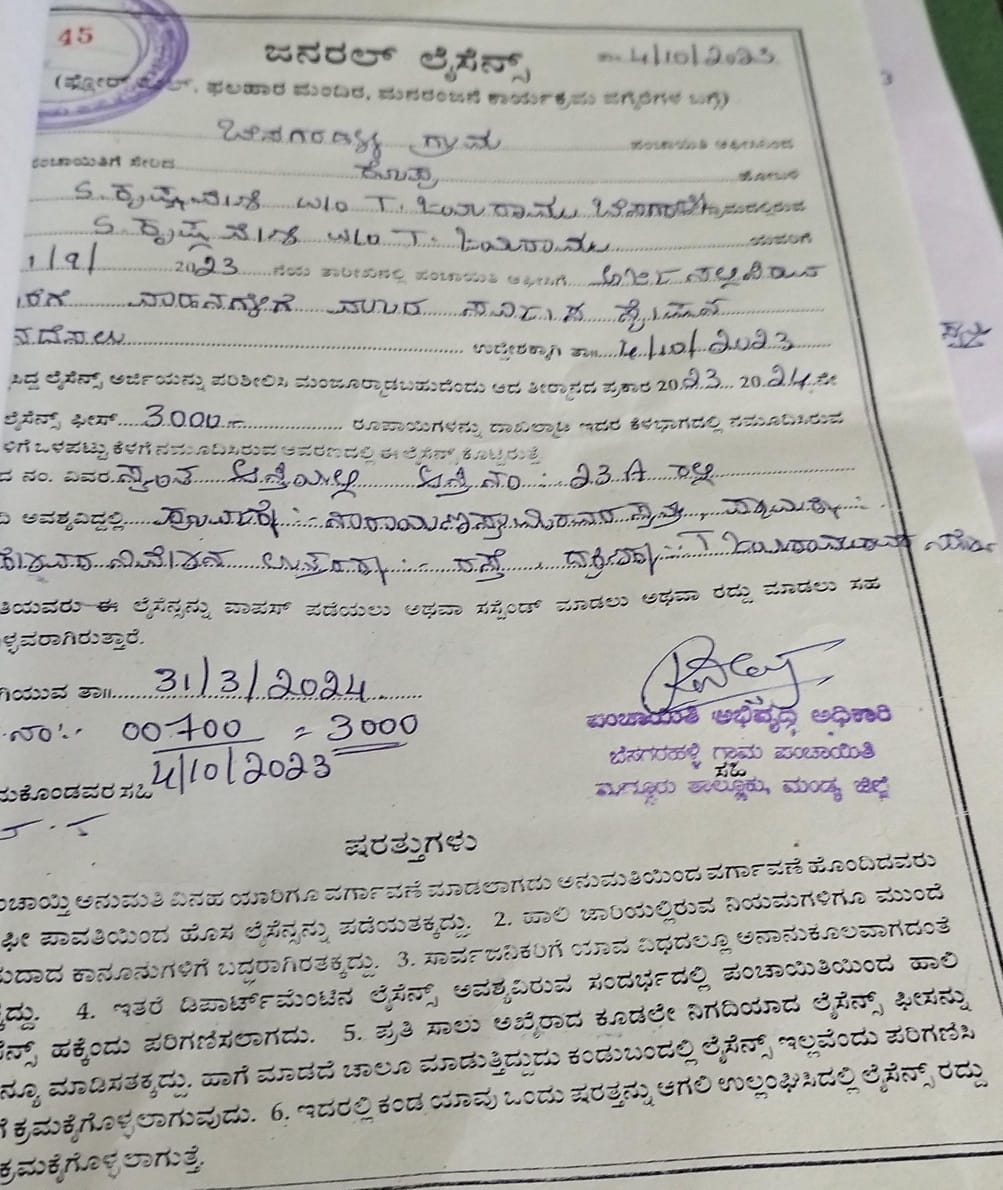 45
ಜನರಲ್ ಲೈಸೆನ್ಸ್ ತಾ 4/10/2023
ಫಲಹಾರ ಮಂದಿರ, ಮನರಂಜನೆ ಕಾರ್ಯಕ್ರಮ ವಗೈರೆಗಳ ಬಗ್ಗೆ)
ಬೆಸಗರಹಳ್ಳಿ ಗ್ರಾಮ ಪಂಚಾಯಿತಿ ಆಫೀಸಿನಿಂದ
ಪಂಚಾಯಿತಿಗೆ ಸೇರಿದ ಕೊಪ್ಪ ಹೋಬಳಿ
S. ಕೃಷ್ಣವೇಣಿ W/o T. ಜಯರಾಮು ಬೆಸಗರಹಳ್ಳಿ ಗ್ರಾಮದಲ್ಲಿರುವ
S. ಕೃಷ್ಣವೇಣಿ W/o T. ಜಯರಾಮು ಯವರಿಗೆ
1/9/ 2023 ನೆಯ ತಾರೀಖಿನಲ್ಲಿ ಪಂಚಾಯಿತಿ ಆಫೀಸಿಗೆ ಅರ್ಜಿ ಸಲ್ಲಿಸಿರುವ
ವಾಹನಗಳಿಗೆ ವಾಟರ್ ಸರ್ವಿಸ್
ನಡೆಸಲು ಉದ್ದೇಶಕ್ಕಾಗಿ ತಾ॥ 4/10/2023
ಸಿದ್ದ ಲೈಸೆನ್ಸ್ ಅರ್ಜಿಯನ್ನು ಪರಿಶೀಲಿಸಿ ಮಂಜೂರ್ಮಾಡಬಹುದೆಂದು ಆದ ತೀರ್ಮಾನದ ಪ್ರಕಾರ 2023 2024 ನೇ
ಲೈಸೆನ್ಸ್ ಫೀಸ್ 3000 ರೂಪಾಯಿಗಳನ್ನು ದಾಖಲ್ಮಾಡಿ ಇದರ ಕೆಳಭಾಗದಲ್ಲಿ ನಮೂದಿಸಿರುವ
ಳಿಗೆ ಒಳಪಟ್ಟು ಕೆಳಗೆ ನಮೂದಿಸಿರುವ ಆವರಣದಲ್ಲಿ ಈ ಲೈಸೆನ್ಸ್ ಕೊಟ್ಟಿರುತ್ತೆ
ದ ನಂ. ವಿವರ ಸ್ವಂತ ಆಸ್ತಿಯಲ್ಲಿ ಆಸ್ತಿ ನಂ : 23A ರಲ್ಲಿ
ದಿ ಅವಶ್ಯವಿದ್ದಲ್ಲಿ ಪೂರ್ವಕ್ಕೆ :- ನಾರಾಯಣಸ್ವಾಮಿರವರ ಸ್ವತ್ತು, ಪಶ್ಚಿಮಕ್ಕೆ :
ನಿವೇಶನ ಉತ್ತರಕ್ಕೆ :- ರಸ್ತೆ ದಕ್ಷಿಣಕ್ಕೆ :- T ಜಯರಾಮುರವರ
ತಿಯವರು ಈ ಲೈಸೆನ್ಸನ್ನು ವಾಪಸ್ ಪಡೆಯಲು ಅಥವಾ ಸಸ್ಪೆಂಡ್ ಮಾಡಲು ಅಥವಾ ರದ್ದು ಮಾಡಲು ಸಹ
ಳ್ಳವರಾಗಿರುತ್ತಾರೆ.
ಗಿಯುವ ತಾ॥ 31/3/2024
ನಂ:- 00700 = 3000
4/10/2023
ದುಕೊಂಡವರ ಸಹಿ
ಪಂಚಾಯಿತಿ ಅಭಿವೃದ್ಧಿ ಅಧಿಕಾರಿ
ಬೆಸಗರಹಳ್ಳಿ ಗ್ರಾಮ ಪಂಚಾಯಿತಿ
ಸಹಿ
ಮದ್ದೂರು ತಾಲ್ಲೂಕು, ಮಂಡ್ಯ ಜಿಲ್ಲೆ
ಷರತ್ತುಗಳು
ಂಚಾಯ್ತಿ ಅನುಮತಿ ವಿನಹ ಯಾರಿಗೂ ವರ್ಗಾವಣೆ ಮಾಡಲಾಗದು ಅನುಮತಿಯಿಂದ ವರ್ಗಾವಣೆ ಹೊಂದಿದವರು
ಫೀ ಪಾವತಿಯಿಂದ ಹೊಸ ಲೈಸೆನ್ಸನ್ನು ಪಡೆಯತಕ್ಕದ್ದು. 2. ಹಾಲಿ ಜಾರಿಯಲ್ಲಿರುವ ನಿಯಮಗಳಿಗೂ ಮುಂದೆ
ುದಾದ ಕಾನೂನುಗಳಿಗೆ ಬದ್ಧರಾಗಿರತಕ್ಕದ್ದು. 3. ಸಾರ್ವಜನಿಕರಿಗೆ ಯಾವ ವಿಧದಲ್ಲೂ ಅನಾನುಕೂಲವಾಗದಂತೆ
ಕ್ಕದ್ದು. 4. ಇತರೆ ಡಿಪಾರ್ಟ್‌ಮೆಂಟಿನ ಲೈಸೆನ್ಸ್ ಅವಶ್ಯವಿರುವ ಸಂದರ್ಭದಲ್ಲಿ ಪಂಚಾಯಿತಿಯಿಂದ ಹಾಲಿ
ೆನ್ಸ್ ಹಕ್ಕೆಂದು ಪರಿಗಣಿಸಲಾಗದು. 5. ಪ್ರತಿ ಸಾಲು ಅಖೈರಾದ ಕೂಡಲೇ ನಿಗದಿಯಾದ ಲೈಸೆನ್ಸ್ ಫೀಸನ್ನು
ನ್ಯೂ ಮಾಡಿಸತಕ್ಕದ್ದು. ಹಾಗೆ ಮಾಡದೆ ಚಾಲೂ ಮಾಡುತ್ತಿದ್ದುದು ಕಂಡುಬಂದಲ್ಲಿ ಲೈಸೆನ್ಸ್ ಇಲ್ಲವೆಂದು ಪರಿಗಣಿಸಿ
ಗೆ ಕ್ರಮಕೈಗೊಳ್ಳಲಾಗುವುದು. 6. ಇದರಲ್ಲಿ ಕಂಡ ಯಾವು ಒಂದು ಷರತ್ತನ್ನು ಆಗಲಿ ಉಲ್ಲಂಘಿಸಿದಲ್ಲಿ ಲೈಸೆನ್ಸ್ ರದ್ದು
ಕ್ರಮಕೈಗೊಳ್ಳಲಾಗುತ್ತೆ.